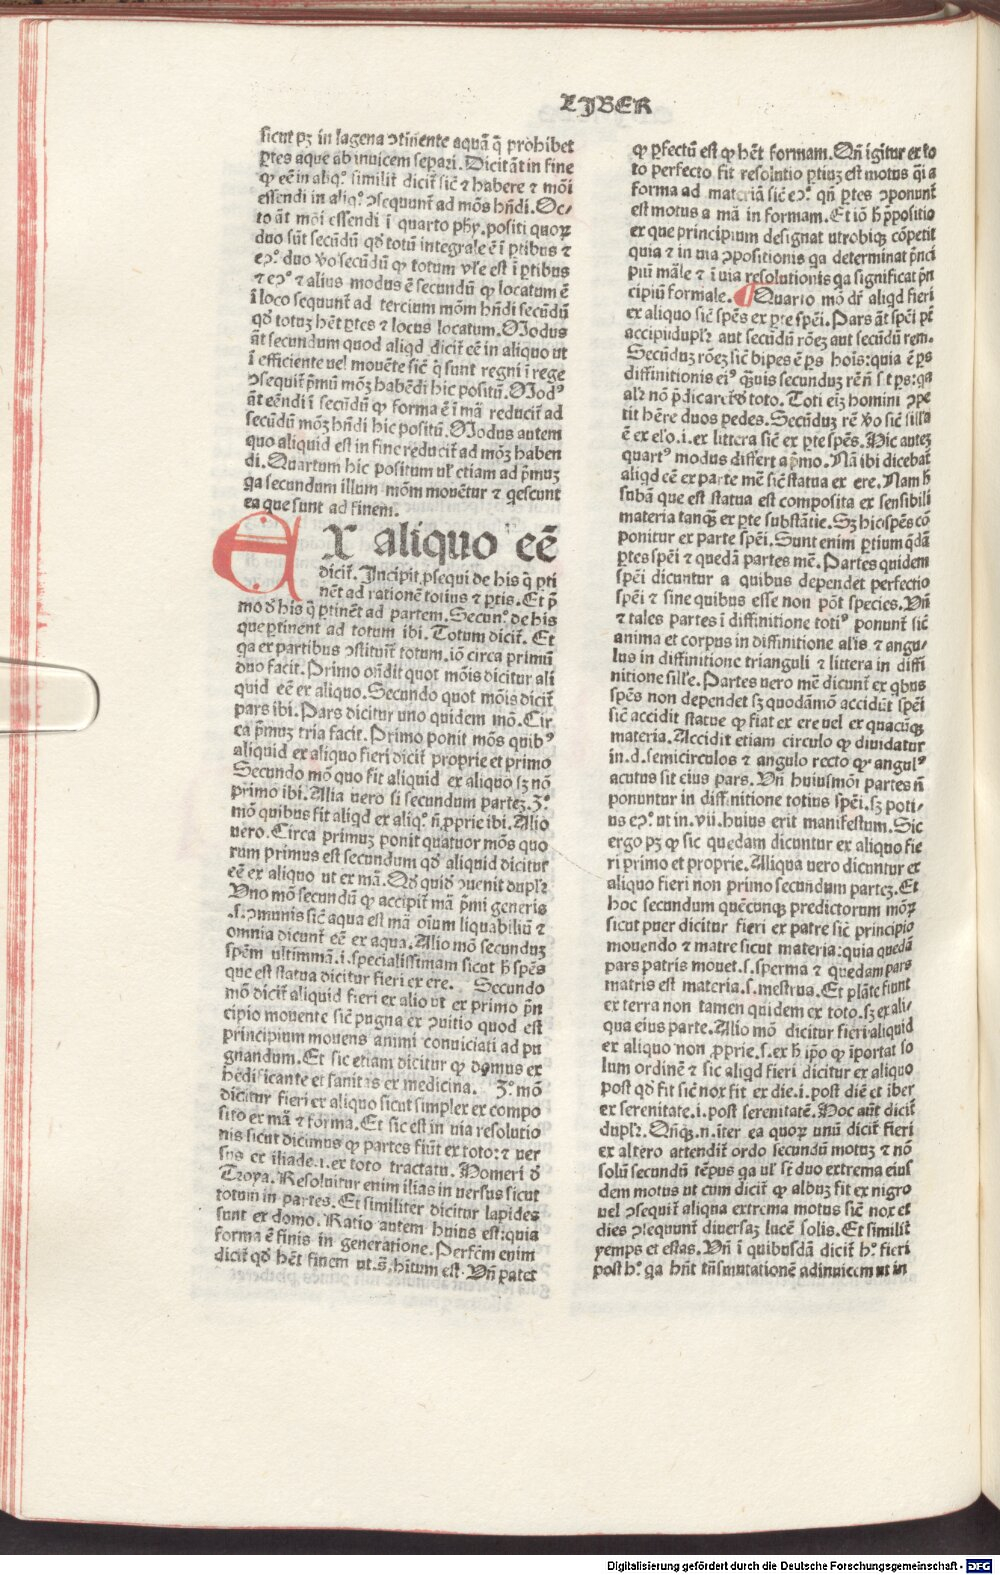 LIBER
sicut pꝫ in lagena ↄtinente aquā q̄ prohibet
ꝑtes aque ab inuicem separi. Dicit̄ āt in fine
ꝙ eē in aliqᵒ. similit̄ dicit̄ sic̄ ⁊ habere ⁊ mōi
essendi in aliqᵒ. ↄsequunt̄ ad mōs hn̄di. Oc⸗
to āt mōi essendi ī quarto phy. positi quoꝝ
duo sūt secūdū qđ totū integrale ē ī ꝑtibus ⁊
eↄᵒ. duo v̓o secūdū ꝙ totum vl̓e est ī ꝑtibus
⁊ eↄᵒ ⁊ alius modus ē secundū ꝙ locatum ē
ī loco sequunt̄ ad tercium mōm hn̄di secūdū
qđ totuꝫ hēt ꝑtes ⁊ locus locatum. Modus
āt secundum quod aliqd dicit̄ eē in aliquo ut
ī efficiente uel mouēte sic̄ q̄ sunt regni ī rege
ↄsequit̄ p̄mū mōꝫ habēdi hic positū. Modꝰ
āt eēndi ī secūdū ꝙ forma ē ī mā reducit̄ ad
secūdū mōꝫ hn̄di hic positū. Modus autem
quo aliquid est in fine reducit̄ ad mōꝫ haben
di. Quartum hic positum ul̓ etiam ad p̄muꝫ
qa secundum illum mōm mouētur ⁊ qescunt
ea que sunt ad finem.
EX aliquo eē
dicit̄. Incipit ꝓsequi de his q̄ ꝑti
nēt ad rationē totius ⁊ ꝑtis. Et p̄
mo đ his q̄ ꝑtinēt ad partem. Secunᵒ. de his
que ꝑtinent ad totum ibi. Totum dicit̄. Et
qa ex partibus ↄstituit̄ totum. iō circa primū
duo facit. Primo on̄dit quot mōis dicitur ali
quid eē ex aliquo. Secundo quot mōis dicit̄
pars ibi. Pars dicitur uno quidem mō. Cir
ca p̄muꝫ tria facit. Primo ponit mōs quibꝰ
aliquid ex aliquo fieri dicit̄ proprie et primo
Secundo mō quo fit aliquid ex aliquo sꝫ nō
primo ibi. Alia uero si secundum parteꝫ. 3ᵒ.
mō quibus fit aliqd ex aliqᵒ. n̄ ꝓprie ibi. Alio
uero. Circa primuꝫ ponit quatuor mōs quo
rum primus est secundum qđ aliquid dicitur
eē ex aliquo ut ex mā. Qđ quiđ ↄuenit dupl̓r
Uno mō secundū ꝙ accipit̄ mā p̄mi generis
.s. ↄmunis sic̄ aqua est mā oīum liquabiliū ⁊
omnia dicunt̄ eē ex aqua. Alio mō secunduꝫ
spēm ultimmā. i. specialissimam sicut h̄ spēs
que est statua dicitur fieri ex ere. Secundo
mō dicit̄ aliquid fieri ex alio ut ex primo p̄n
cipio mouente sic̄ pugna ex ↄuitio quod est
principium mouens animi conuiciati ad pu
gnandum. Et sic etiam dicitur ꝙ domus ex
hedificante et sanitas ex medicina. 3ᵒ. mō
dicitur fieri ex aliquo sicut simplex ex compo
sito ex mā ⁊ forma. Et sic est in uia resolutio
nis sicut dicimus ꝙ partes fiūt ex toto: ⁊ uer
sus ex iliade .i. ex toto tractatu. Homeri đ
Troya. Resoluitur enim ilias in uersus sicut
totum in partes. Et similiter dicitur lapides
sunt ex domo. Ratio autem huius est: quia
forma ē finis in generatione. Perfc̄m enim
dicit̄ qđ hēt finem ut .s̄. hītum est. Vn̄ patet
ꝙ ꝑfectū est ꝙ hēt formam. Qn̄ igitur ex to
to perfecto fit resolutio ꝑtiuꝫ est motus q̄i a
forma ad materiā sic̄ eↄᵒ. qn̄ ꝑtes ↄponunt̄
est motus a mā in formam. Et iō h̄ p̄positio
ex que principium designat utrobiqꝫ cōpetit
quia ⁊ in uia ↄpositionis qa determinat p̄nci
piū māle ⁊ ī uia resolutionis qa significat p̄n
cipiū formale. ¶ Quarto mō dr̄ aliqd fieri
ex aliquo sic̄ spēs ex ꝑte spēi. Pars āt spēi pt̄
accipi dupl̓r aut secūdū rōeꝫ aut secūdū rem.
Secūduꝫ rōeꝫ sic̄ bipes ē ꝑs hois: quia ē ꝑs
diffinitionis eiꝰ q̄ꝫuis secunduꝫ rēn̄ sit ꝑs: qa
al̓r nō p̄dicaret̄ đ toto. Toti eīꝫ homini ↄpe
tit hēre duos pedes. Secūduꝫ rē v̓o sic̄ silla
ē ex elo̓. i. ex littera sic̄ ex ꝑte spēs. Hic auteꝫ
quartꝰ modus differt a p̄mo. Nā ibi dicebat̄
aliqd eē ex parte mē sic̄ statua ex ere. Nam h̄
subā que est statua est composita ex sensibili
materia tanqꝫ ex ꝑte substātie. Sꝫ hic spēs cō
ponitur ex parte spēi. Sunt enim ꝑtium q̄dā
ꝑtes spēi ⁊ quedā partes mē. Partes quidem
spēi dicuntur a quibus dependet perfectio
spēi ⁊ sine quibus esse non pōt species. Vn̄
⁊ tales partes ī diffinitione totiꝰ ponunt̄ sic̄
anima et corpus in diffinitione al̓is ⁊ angu⸗
lus in diffinitione trianguli ⁊ littera in diffi
nitione sill̓e. Partes uero mē dicunt̄ ex qbus
spēs non dependet sꝫ quodāmō accidūt spēi
sic̄ accidit statue ꝙ fiat ex ere uel ex quacūqꝫ
materia. Accidit etiam circulo ꝙ diuidatur
in .d. semicirculos ⁊ angulo recto ꝙ angulꝰ
acutus sit eius pars. Vn̄ huiusmōi partes n̄
ponuntur in diffinitione totius spēi. sꝫ poti⸗
us eↄᵒ. ut in .vii. huius erit manifestum. Sic
ergo pꝫ ꝙ sic quedam dicuntur ex aliquo fie
ri primo et proprie. Aliqua uero dicuntur ex
aliquo fieri non primo secundum parteꝫ. Et
hoc secundum quēcunqꝫ predictorum mōꝝ
sicut puer dicitur fieri ex patre sic̄ principio
mouendo ⁊ matre sicut materia: quia quedā
pars patris mouet .s. sperma ⁊ quedam pars
matris est materia .s. mēstrua. Et plāte fiunt
ex terra non tamen quidem ex toto. sꝫ ex ali⸗
qua eius parte. Alio mō dicitur fieri aliquid
ex aliquo non ꝓprie .s. ex h̄ ip̄o ꝙ īportat so
lum ordinē ⁊ sic aliqd fieri dicitur ex aliquo
post qđ fit sic̄ nox fit ex die. i. post diē et iber
ex serenitate. i. post serenitatē. Hoc aūt dicit̄
dupl̓r. Qn̄qꝫ .n. īter ea quoꝝ unū dicit̄ fieri
ex altero attendit̄ ordo secundū motuꝫ ⁊ nō
solū secundū tēpus qa ul̓ st̄ duo extrema eius
dem motus ut cum dicit̄ ꝙ albuꝫ fit ex nigro
uel ↄsequit̄ aliqua extrema motus sic̄ nox et
dies ↄsequunt̄ diuersaꝫ lucē solis. Et similit̄
yemps et estas. Vn̄ ī quibusdā dicit̄ hᵒ. fieri
post hᵒ. qa hn̄t tn̄smutationē adinuicem ut in
Digitalisierung gefördert durch die Deutsche Forschungsgemeinschaft - DFG